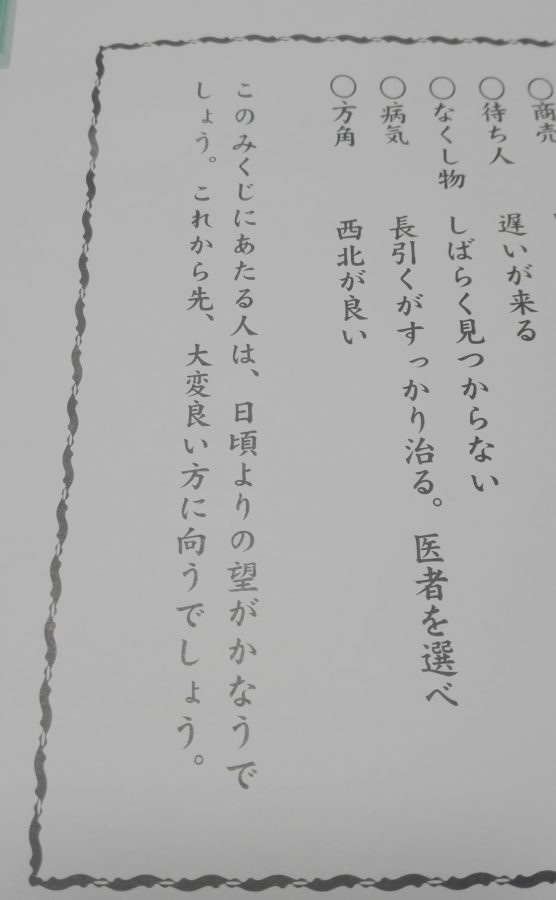 ○商売
○待ち人 遅いが来る
○なくし物 しばらく見つからない
○病気 長引くがすっかり治る。医者を選べ
○方角 西北が良い
このみくじにあたる人は、日頃よりの望がかなうで
しょう。これから先、大変良い方に向うでしょう。